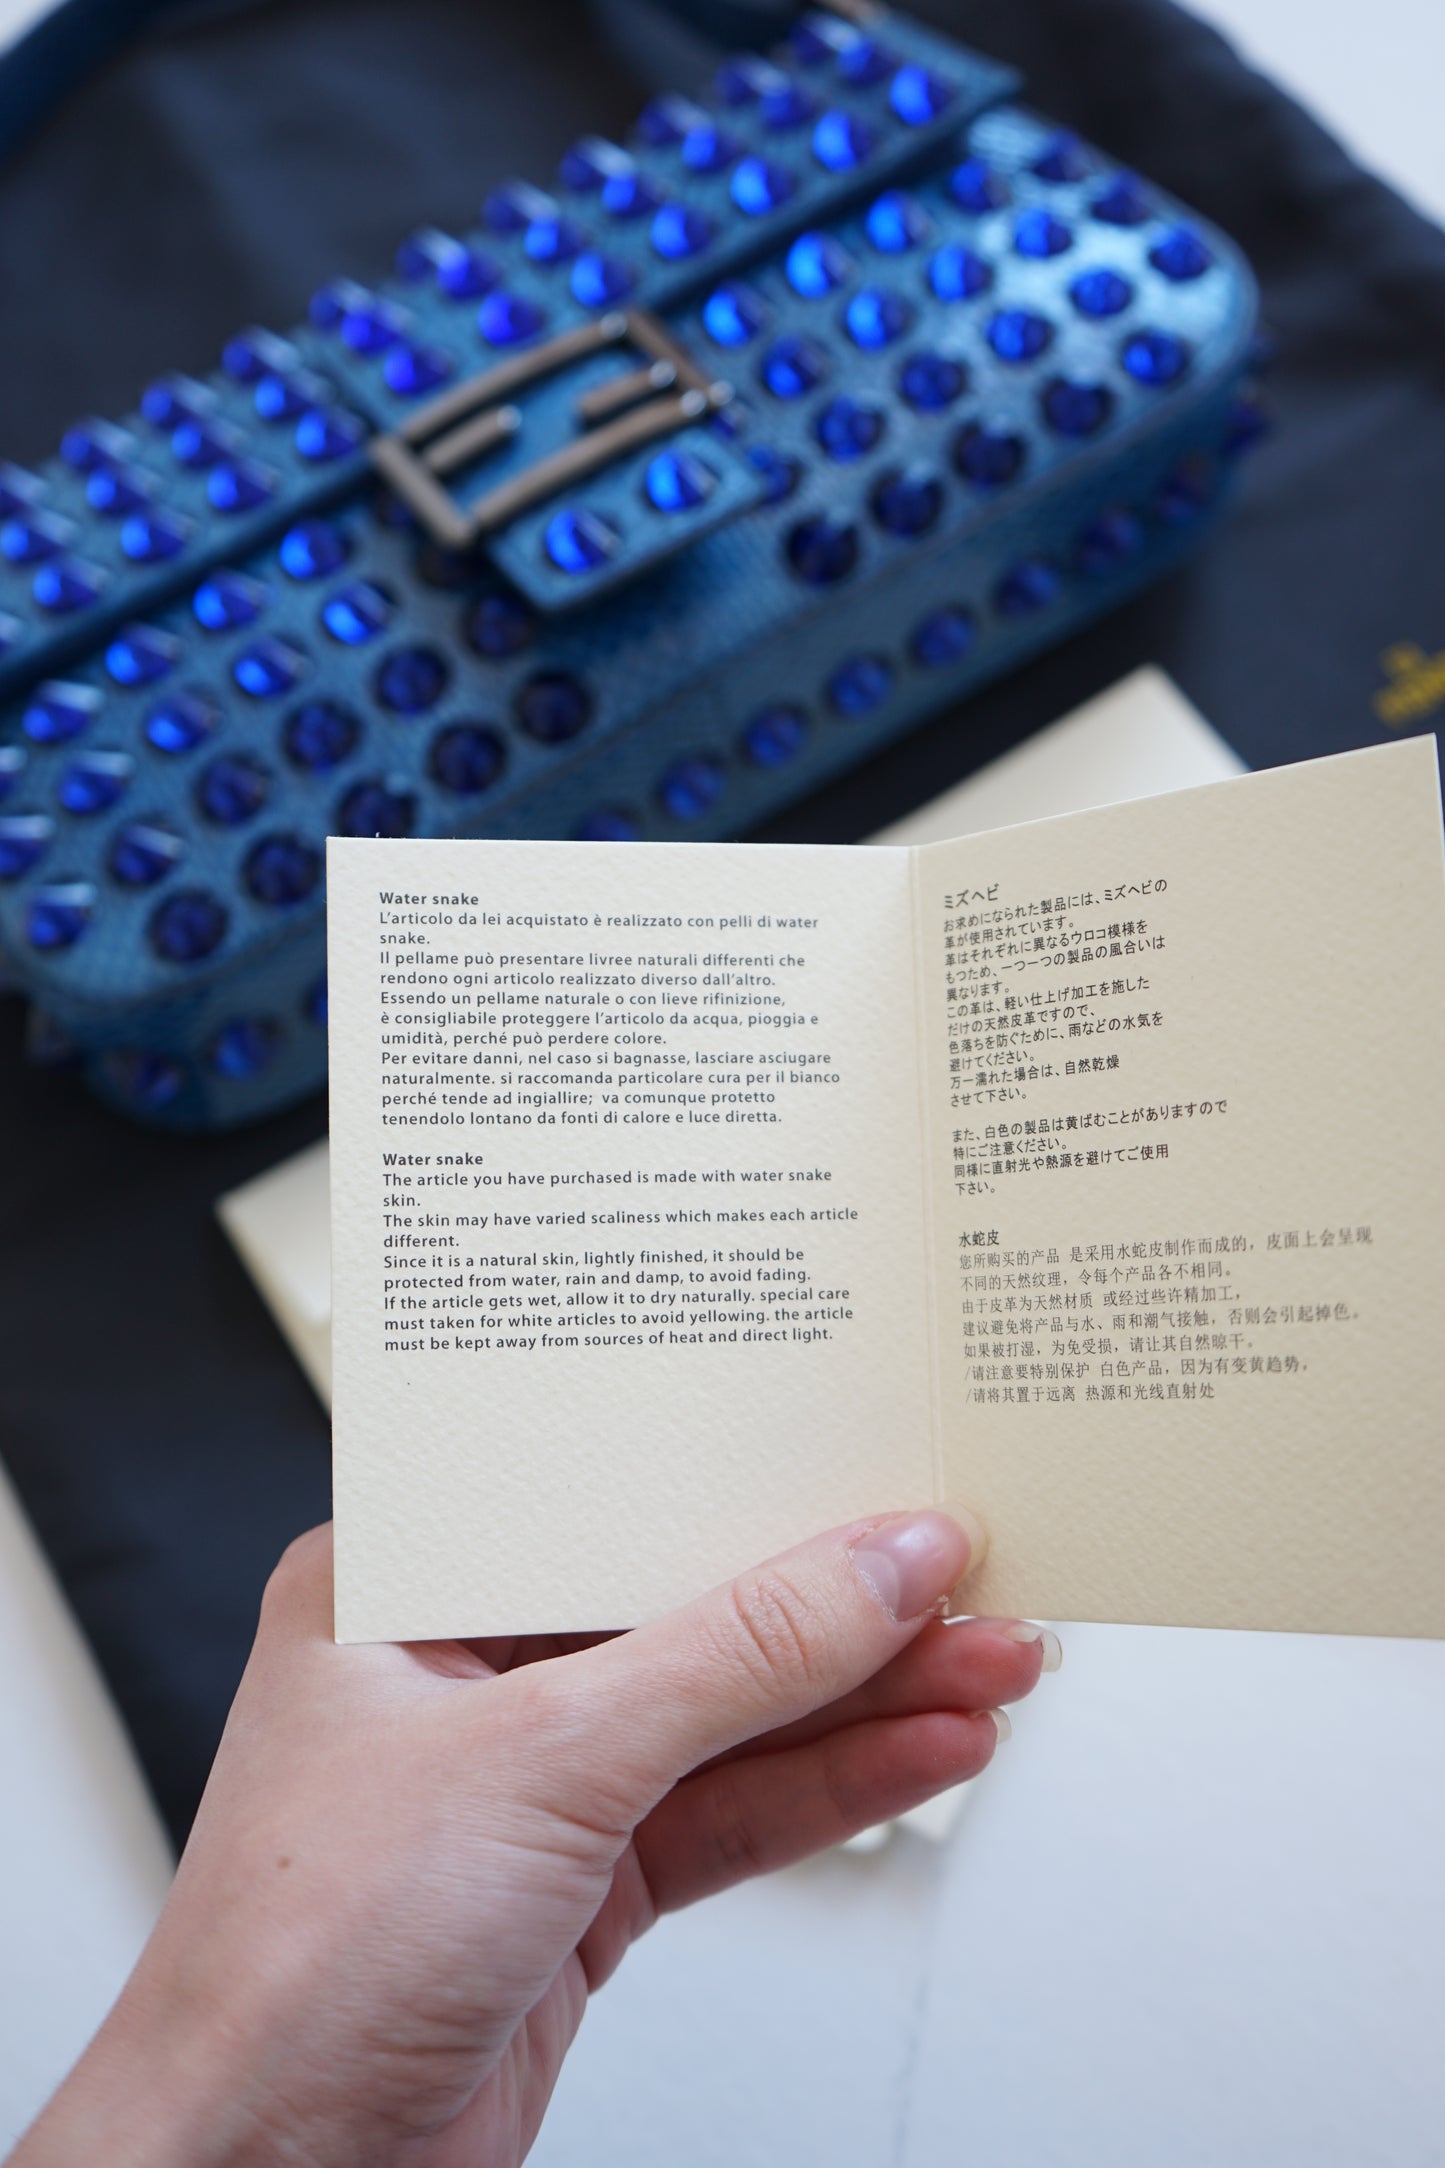 Water snake
L'articolo da lei acquistato è realizzato con pelli di water
snake.
Il pellame può presentare livree naturali differenti che
rendono ogni articolo realizzato diverso dall'altro.
Essendo un pellame naturale o con lieve rifinizione,
è consigliabile proteggere l'articolo da acqua, pioggia e
umidità, perché può perdere colore.
Per evitare danni, nel caso si bagnasse, lasciare asciugare
naturalmente. si raccomanda particolare cura per il bianco
perché tende ad ingiallire; va comunque protetto
tenendolo lontano da fonti di calore e luce diretta.
Water snake
The article you have purchased is made with water snake
skin.
The skin may have varied scaliness which makes each article
different.
Since it is a natural skin, lightly finished, it should be
protected from water, rain and damp, to avoid fading.
If the article gets wet, allow it to dry naturally. special care
must taken for white articles to avoid yellowing. the article
must be kept away from sources of heat and direct light.
ミズヘビ
お求めになられた製品には、ミズヘビの
革が使用されています。
革はそれぞれに異なるウロコ模様を
もつため、一つ一つの製品の風合いは
異なります。
この革は、軽い仕上げ加工を施した
だけの天然皮革ですので、
色落ちを防ぐために、雨などの水気を
避けてください。
万一濡れた場合は、自然乾燥
させて下さい。
また、白色の製品は黄ばむことがありますので
特にご注意ください。
同様に直射光や熱源を避けてご使用
下さい。
水蛇皮
您所购买的产品 是采用水蛇皮制作而成的，皮面上会呈现
不同的天然纹理，令每个产品各不相同。
由于皮革为天然材质 或经过些许精加工，
建议避免将产品与水、雨和潮气接触，否则会引起掉色。
如果被打湿，为免受损，请让其自然晾干。
/请注意要特别保护 白色产品，因为有变黄趋势，
/请将其置于远离 热源和光线直射处